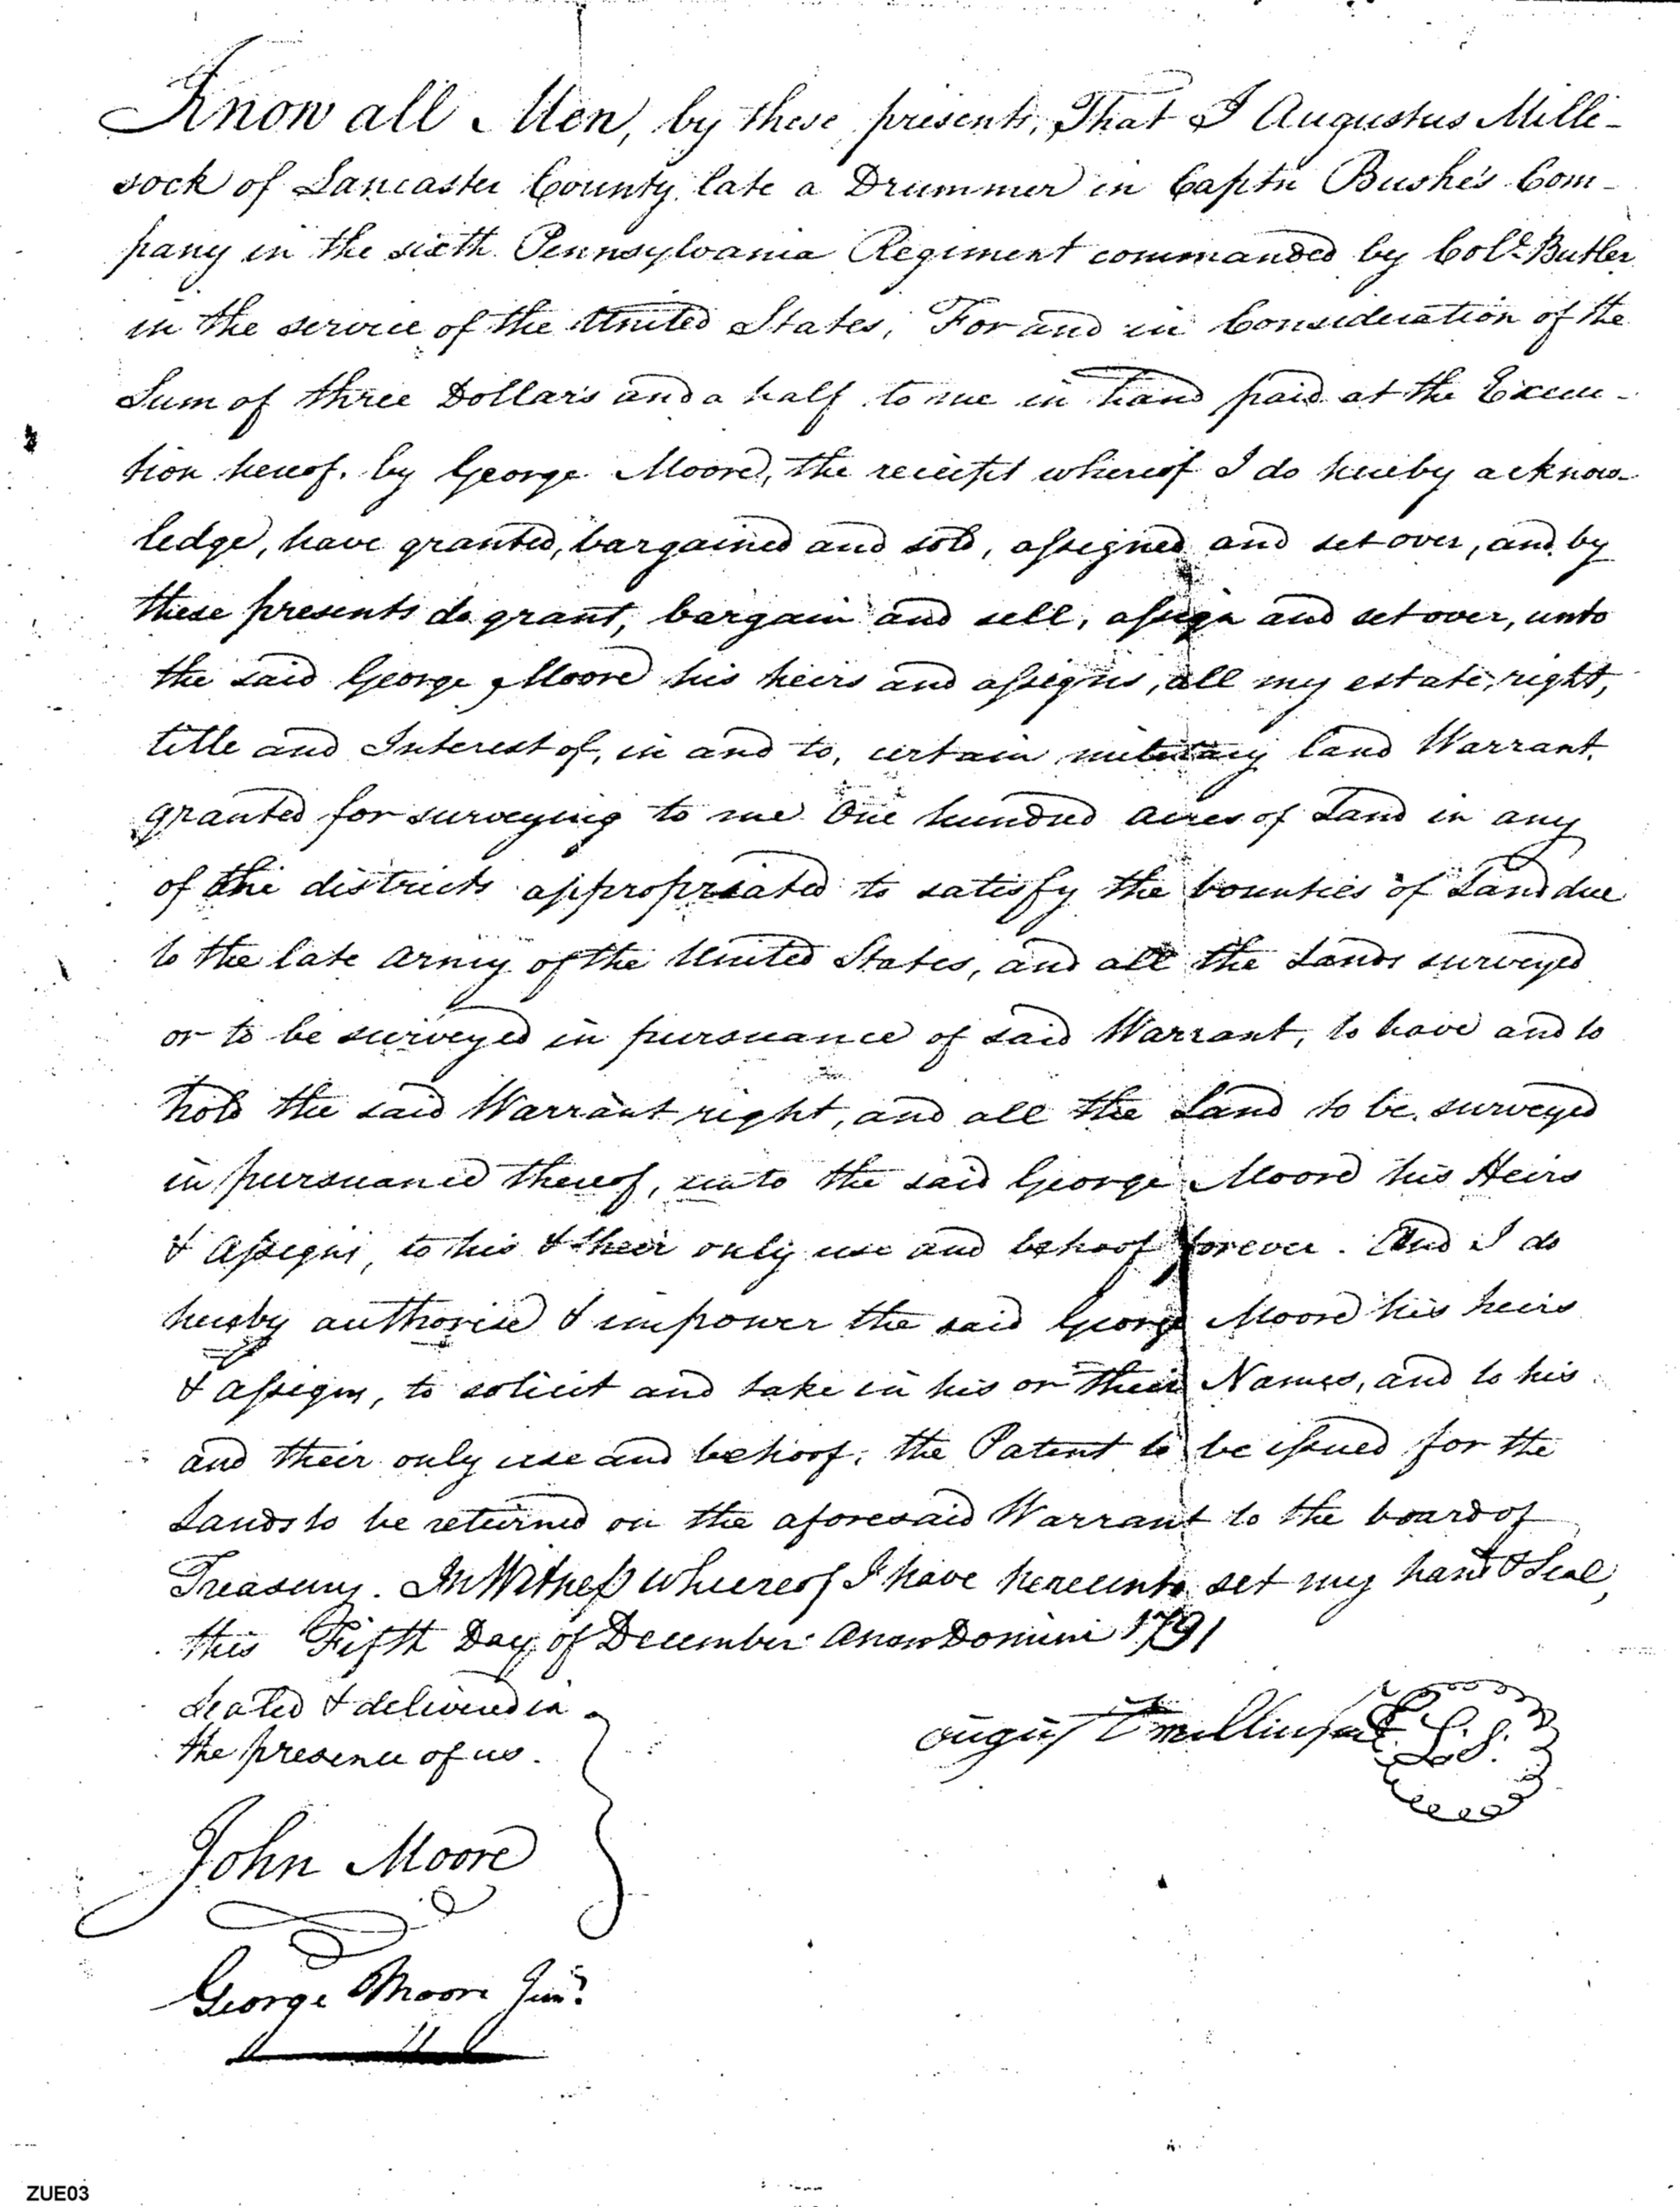 Know all Men, by these presents, That I Augustus Milli-
sock of Lancaster County, late a Drummer in Captn Bushe's Com-
pany in the sixth Pennsylvania Regiment commanded by Col.º Butler
in the service of the United States, For and in Consideration of the
Sum of three Dollars and a half to me in hand paid at the Execu-
tion hereof by George Moore, the receipt whereof I do hereby acknow-
ledge, have granted, bargained and sold, assigned and set over, and by
these presents do grant, bargain and sell, assign and set over, unto
the said George Moore his heirs and assigns, all my estate, right,
title and Interest of, in and to, certain military land Warrant
granted for surveying to me One hundred acres of Land in any
of the districts appropriated to satisfy the bounties of Land due
to the late army of the United States, and all the Lands surveyed
or to be surveyed in pursuance of said Warrant, to have and to
hold the said Warrant right, and all the Land to be surveyed
in pursuance thereof, unto the said George Moore his Heirs
& Assigns, to his & their only use and behoof forever. And I do
hereby authorise & impower the said George Moore his heirs
& assigns, to solicit and take in his or their Names, and to his
and their only use and behoof, the Patent to be issued for the
Lands to be returned on the aforesaid Warrant to the board of
Treasury. In Witness whereof I have hereunto set my hand & Seal,
this Fifth Day of December Anno Domini 1791
Sealed & delivered in
the presence of us.
august
L.S.
John Moore
George Moore Junr.
ZUE03